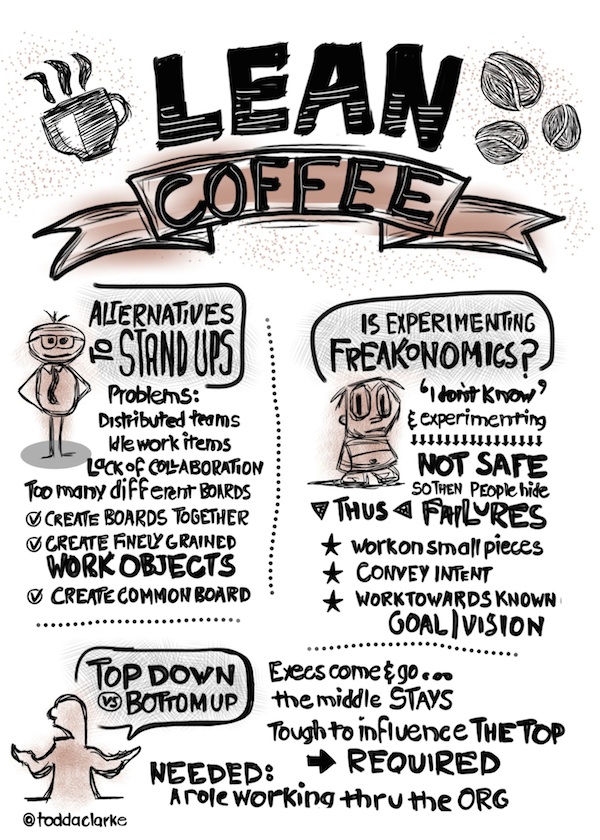 LEAN
COFFEE
ALTERNATIVES
TO STAND UPS
Problems:
Distributed teams
Idle work items
Lack of COLLABORATION
Too many different BOARDS
CREATE BOARDS TOGETHER
CREATE FINELY GRAINED
WORK OBJECTS
CREATE COMMON BOARD
IS EXPERIMENTING
FREAKONOMICS?
"I don't know"
& experimenting
NOT SAFE
SO THEN People hide
THUS FAILURES
★ work on small pieces
★ CONVEY INTENT
★ WORK TOWARDS KNOWN
GOAL | VISION
TOP DOWN
VS BOTTOM UP
Execs come & go...
the middle STAYS
Tough to influence THE TOP
➡ REQUIRED
NEEDED:
A role working thru the ORG
@toddaclarke